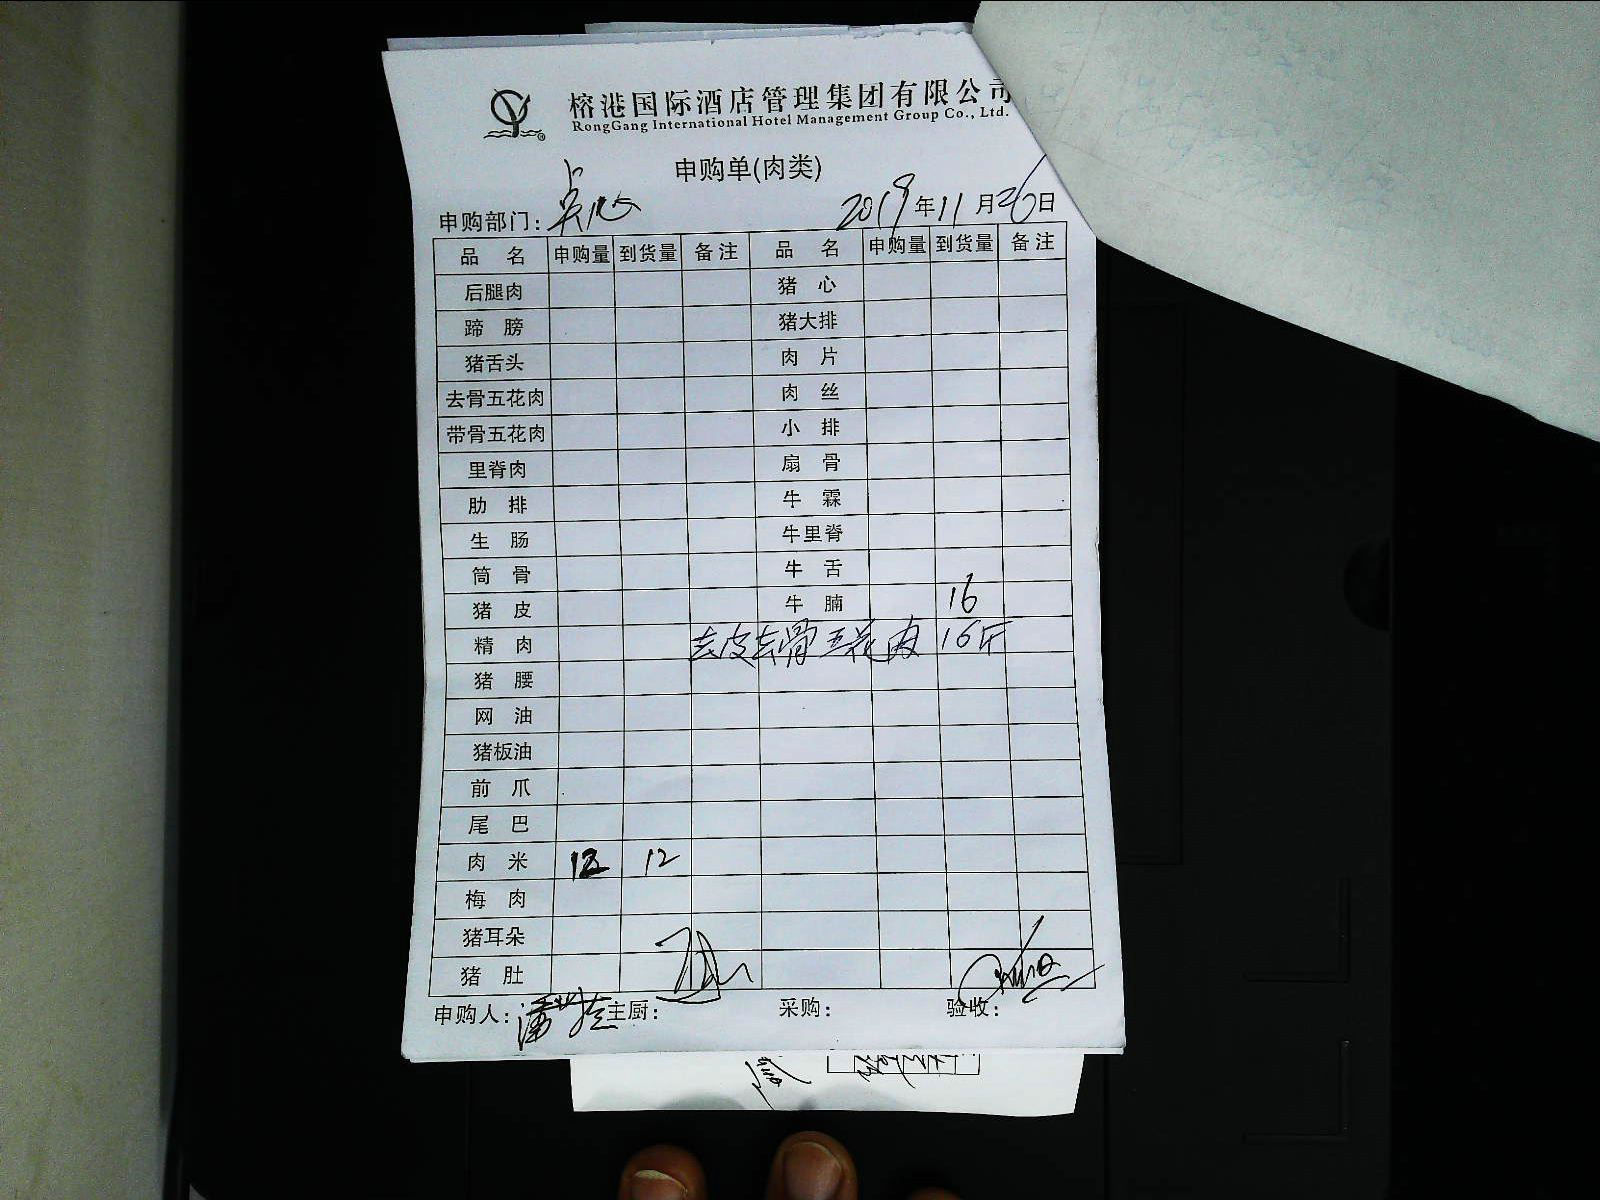 榕港国际酒店管理集团有限公司
RongGang International Hotel Management Group Co., Ltd.
申购单(肉类)
申购部门: 点心 2019年11月26日
品 名 申购量 到货量 备注 品 名 申购量 到货量 备注
后腿肉 猪 心
蹄 膀 猪大排
猪舌头 肉 片
去骨五花肉 肉 丝
带骨五花肉 小 排
里脊肉 扇 骨
肋 排 牛 霖
生 肠 牛里脊
筒 骨 牛 舌
猪 皮 牛 腩 16
精 肉 去皮去骨五花肉 16斤
猪 腰
网 油
猪板油
前 爪
尾 巴
肉 米 12 12
梅 肉
猪耳朵
猪 肚
申购人: 主厨: 采购: 验收: